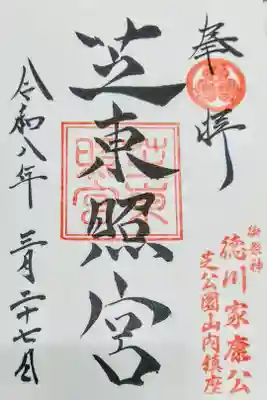 奉拝
御祭神
徳川家康公
芝公園山内鎮座
芝東照宮
令和八年 三月二十七日